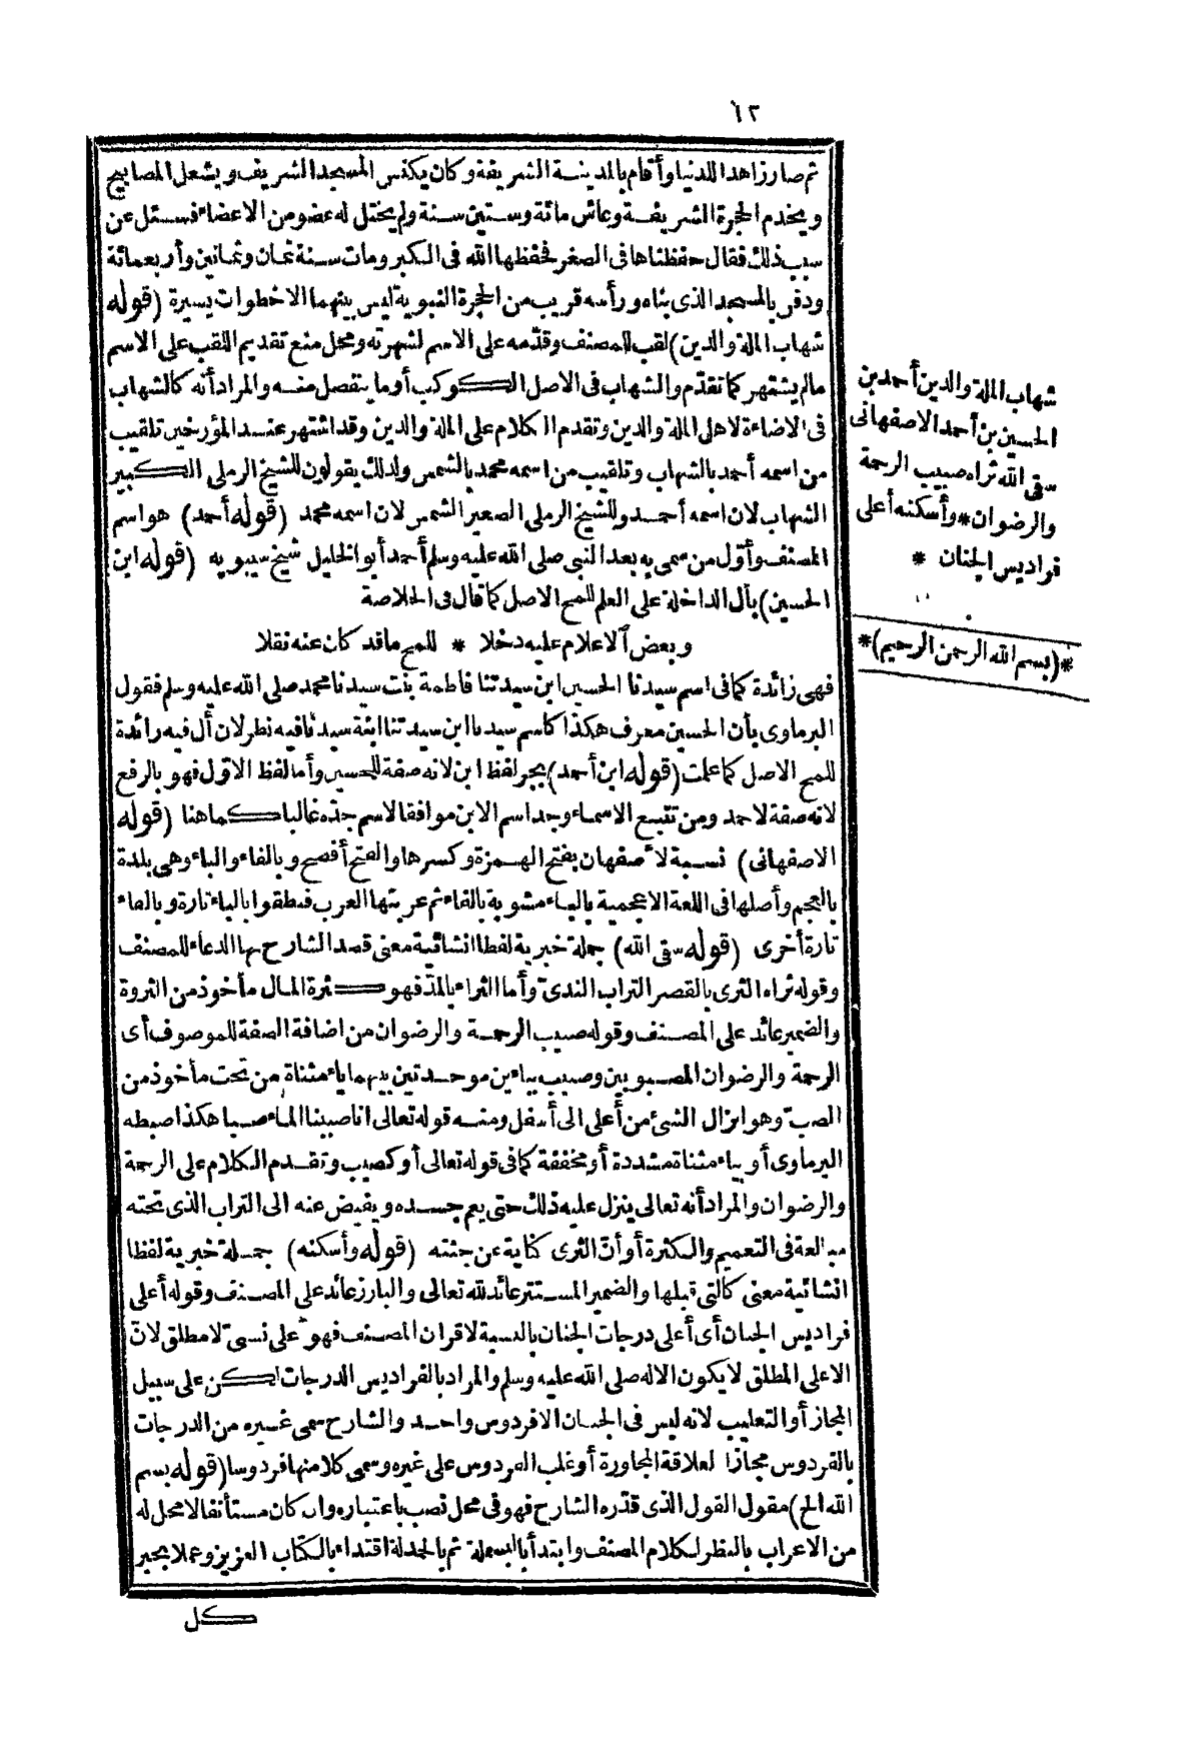 ١٢
ثم صار زاهدا للدنيا وأقام بالمدينة الشريفة وكان يكنس المسجد الشريف ويشعل المصابيح
ويخدم الحجرة الشريفة وعاش مائة وستين سنة ولم يختل له عضو من الاعضاء فسئل عن
سبب ذلك فقال حفظناها فى الصغر فحفظها الله فى الكبر ومات سنة ثمان وثمانين وأربعمائة
ودفن بالمسجد الذى بناه ورأسه قريب من الحجرة النبوية ليس بينهما الا خطوات يسيرة (قوله
شهاب الملة والدين) لقب للمصنف وقدّمه على الاسم لشهرته ومحل منع تقديم اللقب على الاسم
مالم يشتهر كما تقدّم والشهاب فى الاصل الكوكب أو ما ينفصل منه والمراد أنه كالشهاب
فى الاضاءة لاهل الملة والدين وتقدم الكلام على الملة والدين وقد اشتهر عند المؤرخين تلقيب
من اسمه أحمد بالشهاب وتلقيب من اسمه محمد بالشمس ولذلك يقولون للشيخ الرملى الكبير
الشهاب لان اسمه أحمد وللشيخ الرملى الصغير الشمس لان اسمه محمد (قوله أحمد) هو اسم
المصنف وأوّل من سمى به بعد النبى صلى الله عليه وسلم أحمد أبو الخليل شيخ سيبويه (قوله ابن
الحسين) بأل الداخلة على العلم للمح الاصل كما قال فى الخلاصة
وبعض الاعلام عليه دخلا * للمح ما قد كان عنه نقلا
فهى زائدة كما فى اسم سيدنا الحسين ابن سيدتنا فاطمة بنت سيدنا محمد صلى الله عليه وسلم فقول
البرماوى بأن الحسين معرف هكذا كاسم سيدنا ابن سيدتنا ابنة سيدنا فيه نظر لان أل فيه زائدة
للمح الاصل كما علمت (قوله ابن أحمد) بجر لفظ ابن لانه صفة للحسين وأما لفظ الاوّل فهو بالرفع
لانه صفة لاحمد ومن تتبع الاسماء وجد اسم الابن موافقا لاسم جدّه غالبا كما هنا (قوله
الاصفهانى) نسبة لأصفهان بفتح الهمزة وكسرها والفتح أفصح وبالفاء والباء وهى بلدة
بالعجم وأصلها فى اللغة الاعجمية بالباء مشوبة بالفاء ثم عربتها العرب فنطقوا بالباء تارة وبالفاء
تارة أخرى (قوله سقى الله) جملة خبرية لفظا انشائية معنى قصد الشارح بها الدعاء للمصنف
وقوله ثراه الثرى بالقصر التراب الندىّ وأما الثراء بالمدّ فهو كثرة المال مأخوذ من الثروة
والضمير عائد على المصنف وقوله صبيب الرحمة والرضوان من اضافة الصفة للموصوف أى
الرحمة والرضوان المصبوبين وصبيب بباءين موحدتين بينهما ياء مثناة من تحت مأخوذ من
الصبّ وهو انزال الشئ من أعلى الى أسفل ومنه قوله تعالى انا صببنا الماء صبا هكذا ضبطه
البرماوى أو بياء مثناة مشددة أو مخففة كما فى قوله تعالى أو كصيب وتقدم الكلام على الرحمة
والرضوان والمراد أنه تعالى ينزل عليه ذلك حتى يعم جسده ويفيض عنه الى التراب الذى تحته
مبالغة فى التعميم والكثرة أو أنّ الثرى كناية عن جثته (قوله وأسكنه) جملة خبرية لفظا
انشائية معنى كالتى قبلها والضمير المستتر عائد لله تعالى والبارز عائد على المصنف وقوله أعلى
فراديس الجنان أى أعلى درجات الجنان بالنسبة لاقران المصنف فهو على نسبىّ لا مطلق لانّ
الاعلى المطلق لا يكون الا له صلى الله عليه وسلم والمراد بالفراديس الدرجات لكن على سبيل
المجاز أو التغليب لانه ليس فى الجنان الا فردوس واحد والشارح سمى غيره من الدرجات
بالفردوس مجازا لعلاقة المجاورة أو غلب الفردوس على غيره وسمى كلا منها فردوسا (قوله بسم
الله الخ) مقول القول الذى قدّره الشارح فهو فى محل نصب باعتباره وان كان مستأنفا لا محل له
من الاعراب بالنظر لكلام المصنف وابتدأ بالبسملة ثم بالحمدلة اقتداء بالكتاب العزيز وعملا بخبر
كل
شهاب الملة والدين أحمد بن
الحسين بن أحمد الاصفهانى
سقى الله ثراه صبيب الرحمة
والرضوان * وأسكنه أعلى
فراديس الجنان *
*(بسم الله الرحمن الرحيم)*